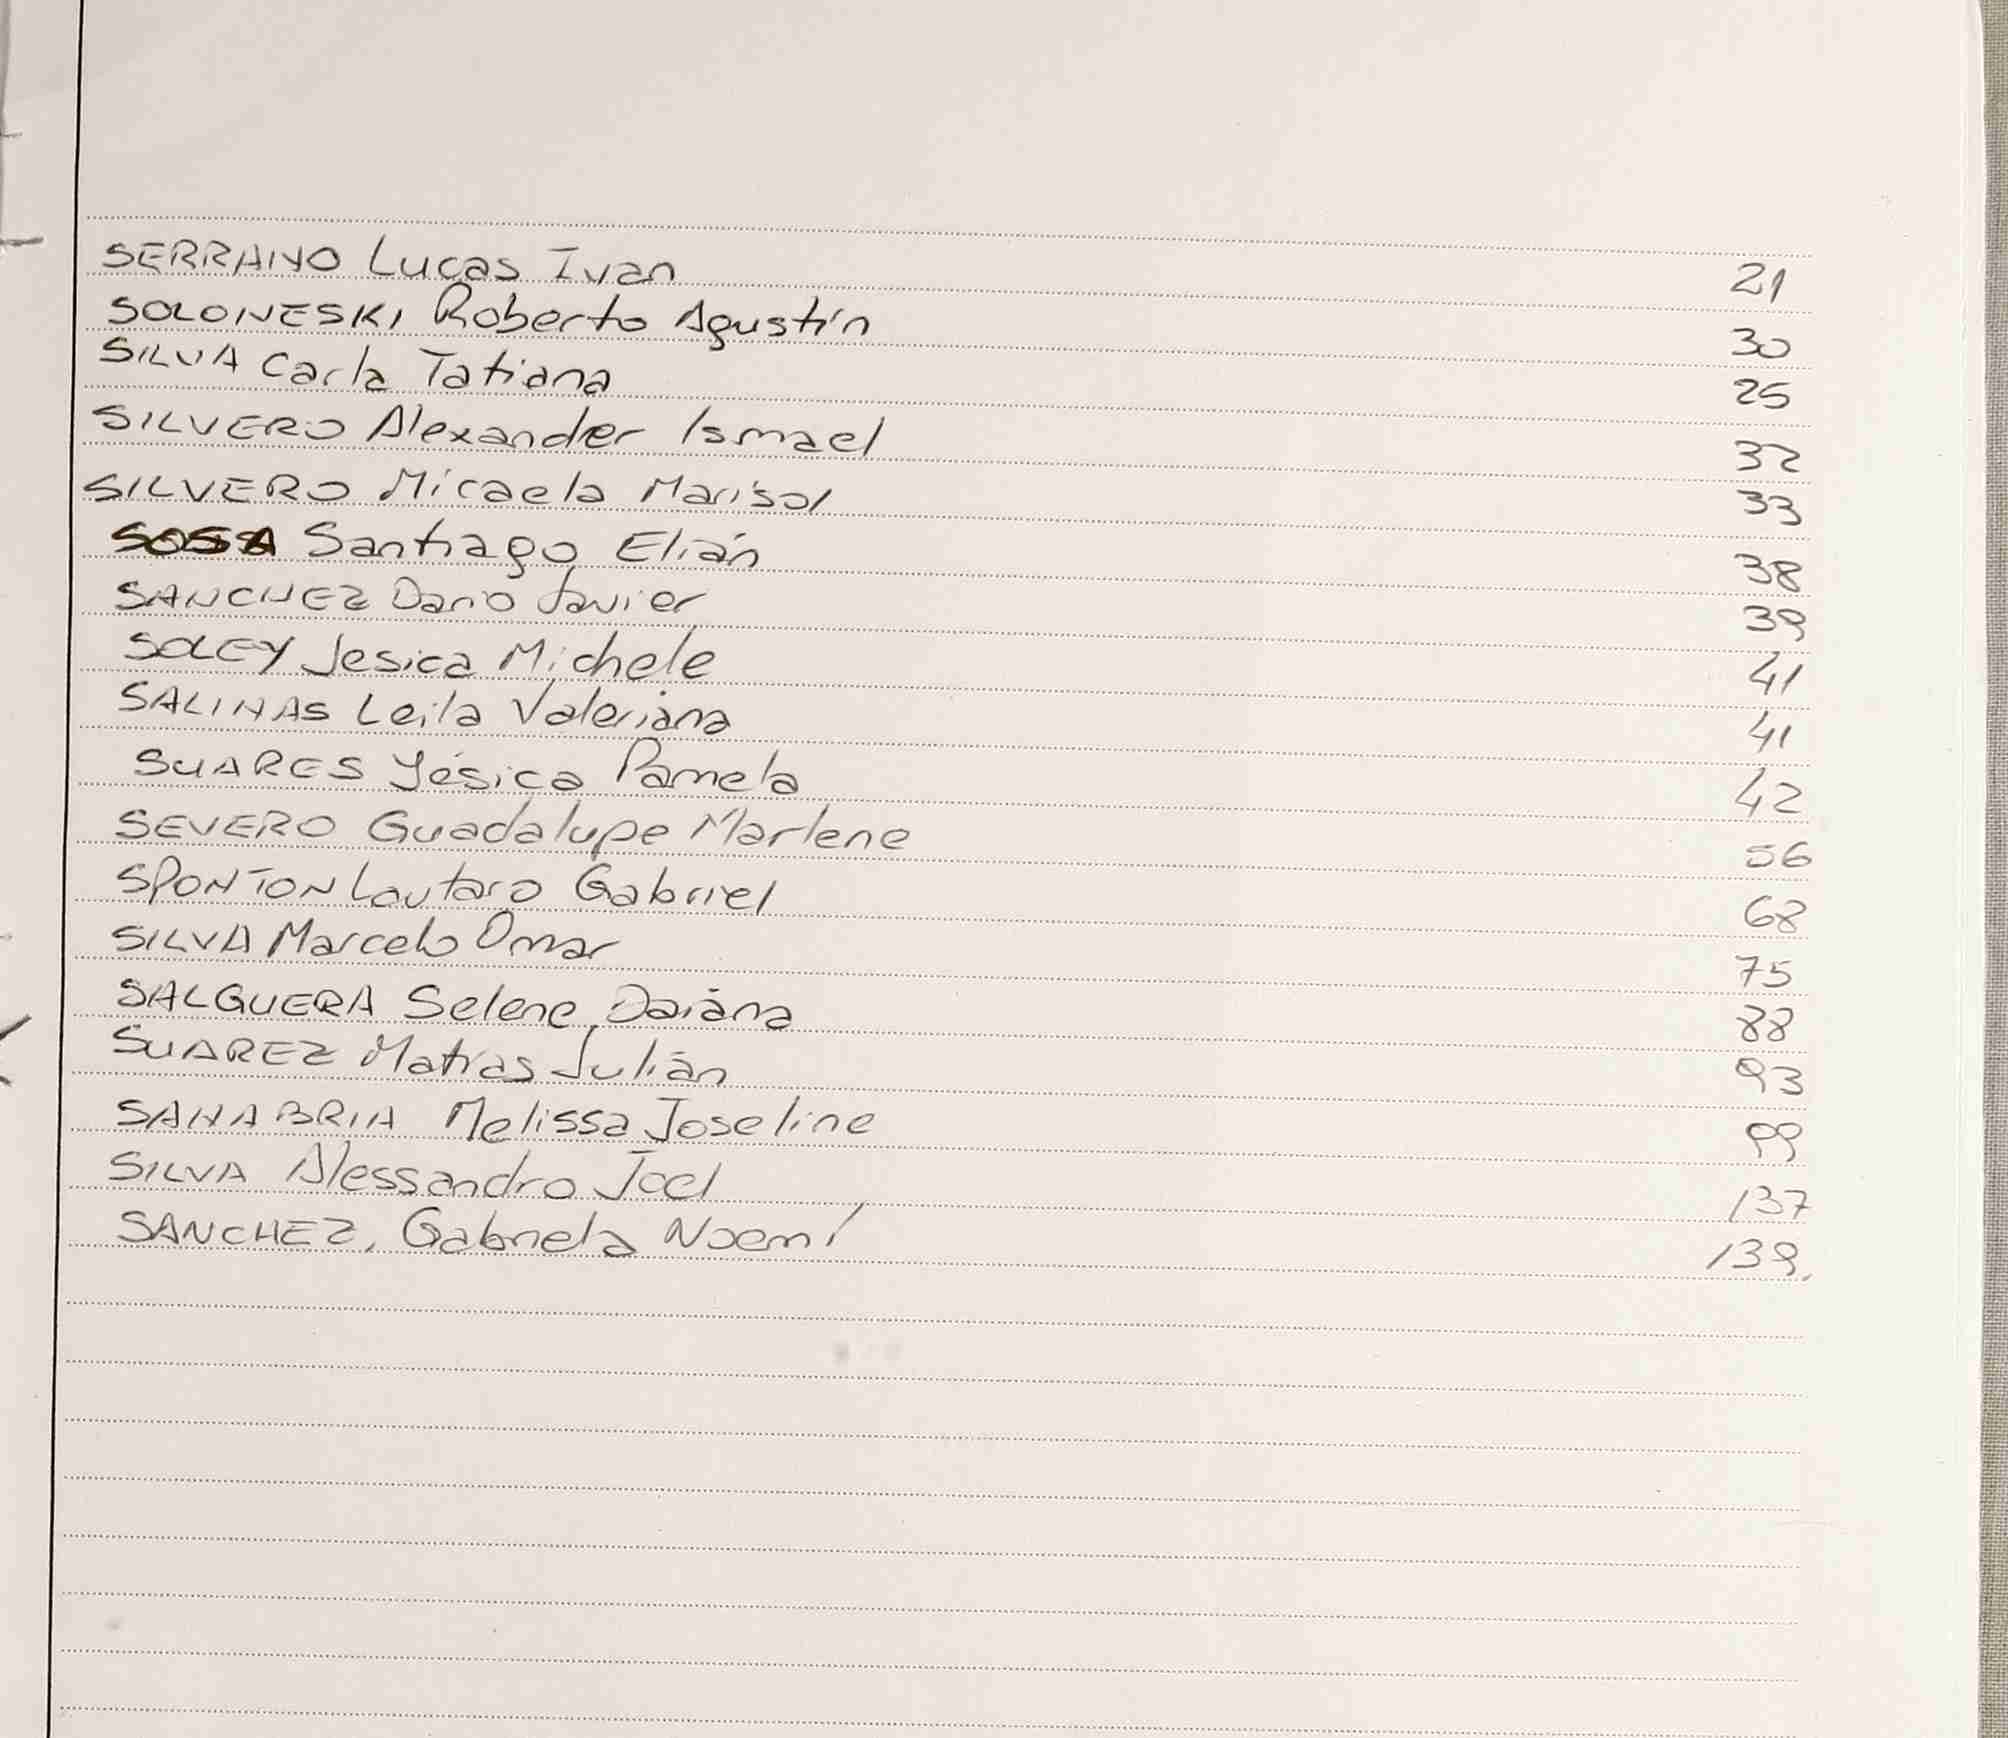 SERRANO Lucas Ivan 21
SOLONESKI Roberto Agustín 30
SILVA Carla Tatiana 25
SILVERO Alexander Ismael 32
SILVERO Micaela Marisol 33
SOSA Santiago Elián 38
SANCHEZ Darío Javier 39
SOLEY Jesica Michele 41
SALINAS Leila Valeriana 41
SUARES Yésica Pamela 42
SEVERO Guadalupe Marlene 56
SPONTON Lautaro Gabriel 68
SILVA Marcelo Omar 75
SALGUERA Selene Daiana 88
SUAREZ Matías Julián 93
SANABRIA Melissa Joseline 99
SILVA Alessandro Joel 137
SANCHEZ, Gabriela Noemí 139.